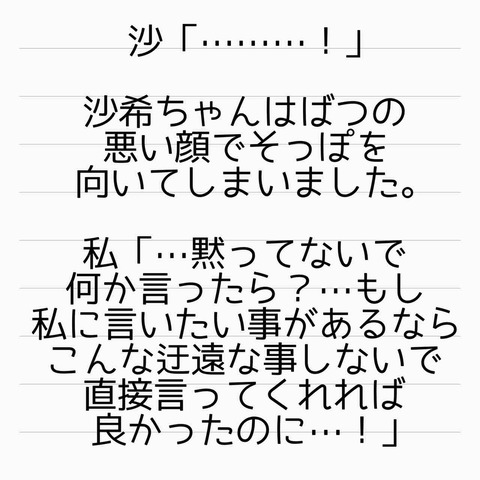 沙「………！」
沙希ちゃんはばつの
悪い顔でそっぽを
向いてしまいました。
私「…黙ってないで
何か言ったら？…もし
私に言いたい事があるなら
こんな迂遠な事しないで
直接言ってくれれば
良かったのに…！」